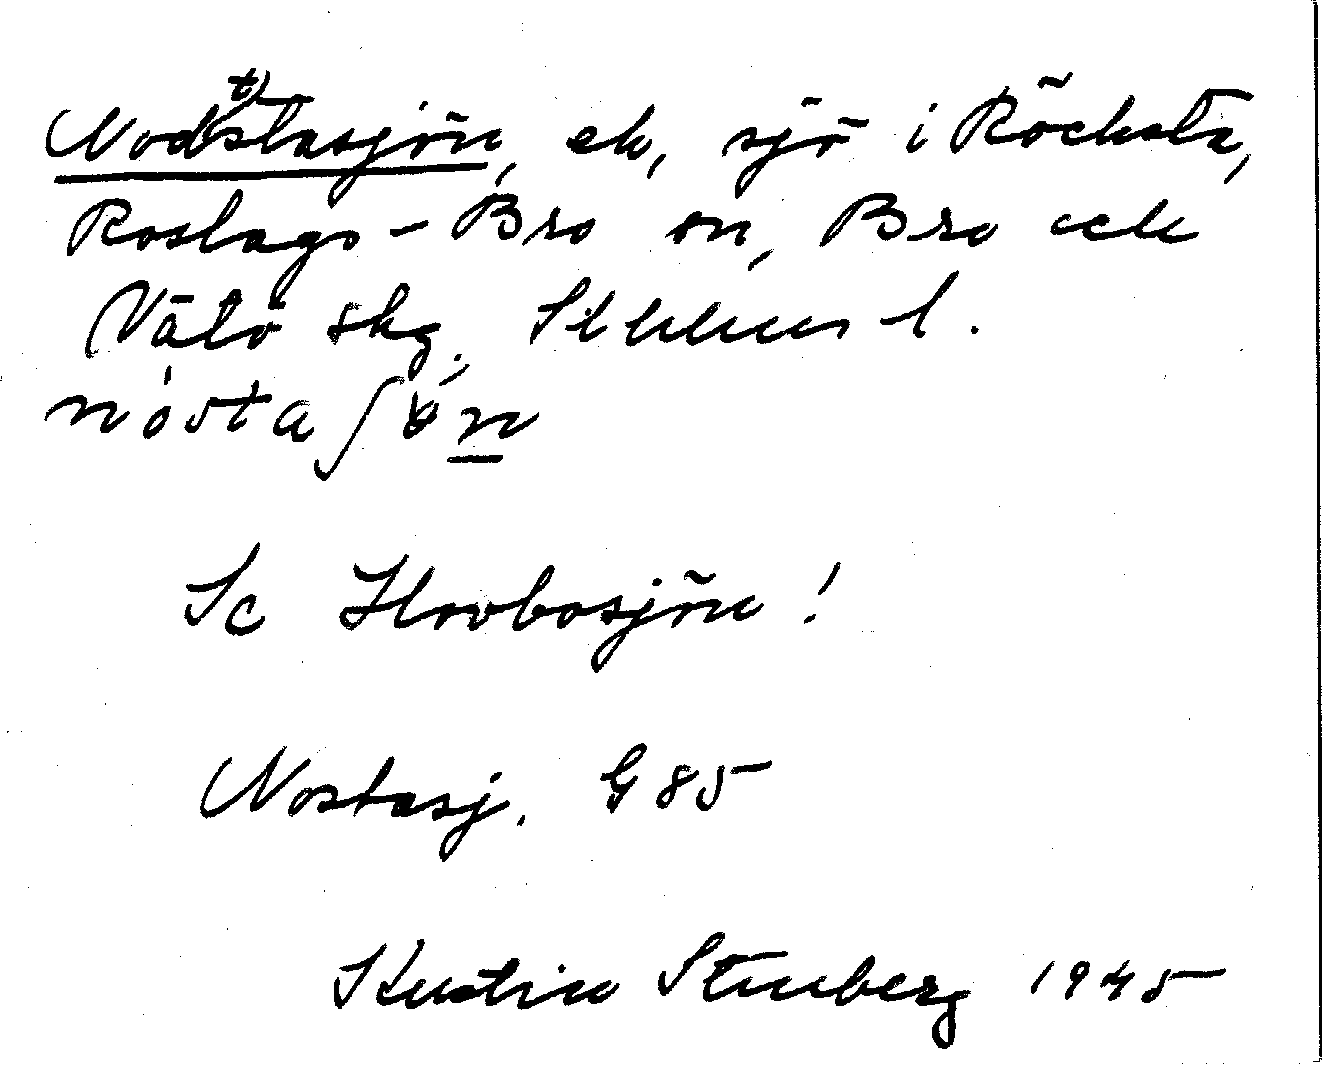 Nodstasjön, ek, sjö i Röcksta,
Roslags-Bro sn, Bro och
Vätö skg. Sthlms l.
nostaʃön
Se Hovbosjön!
Nostasj. G 85
Kerstin Stenberg 1945